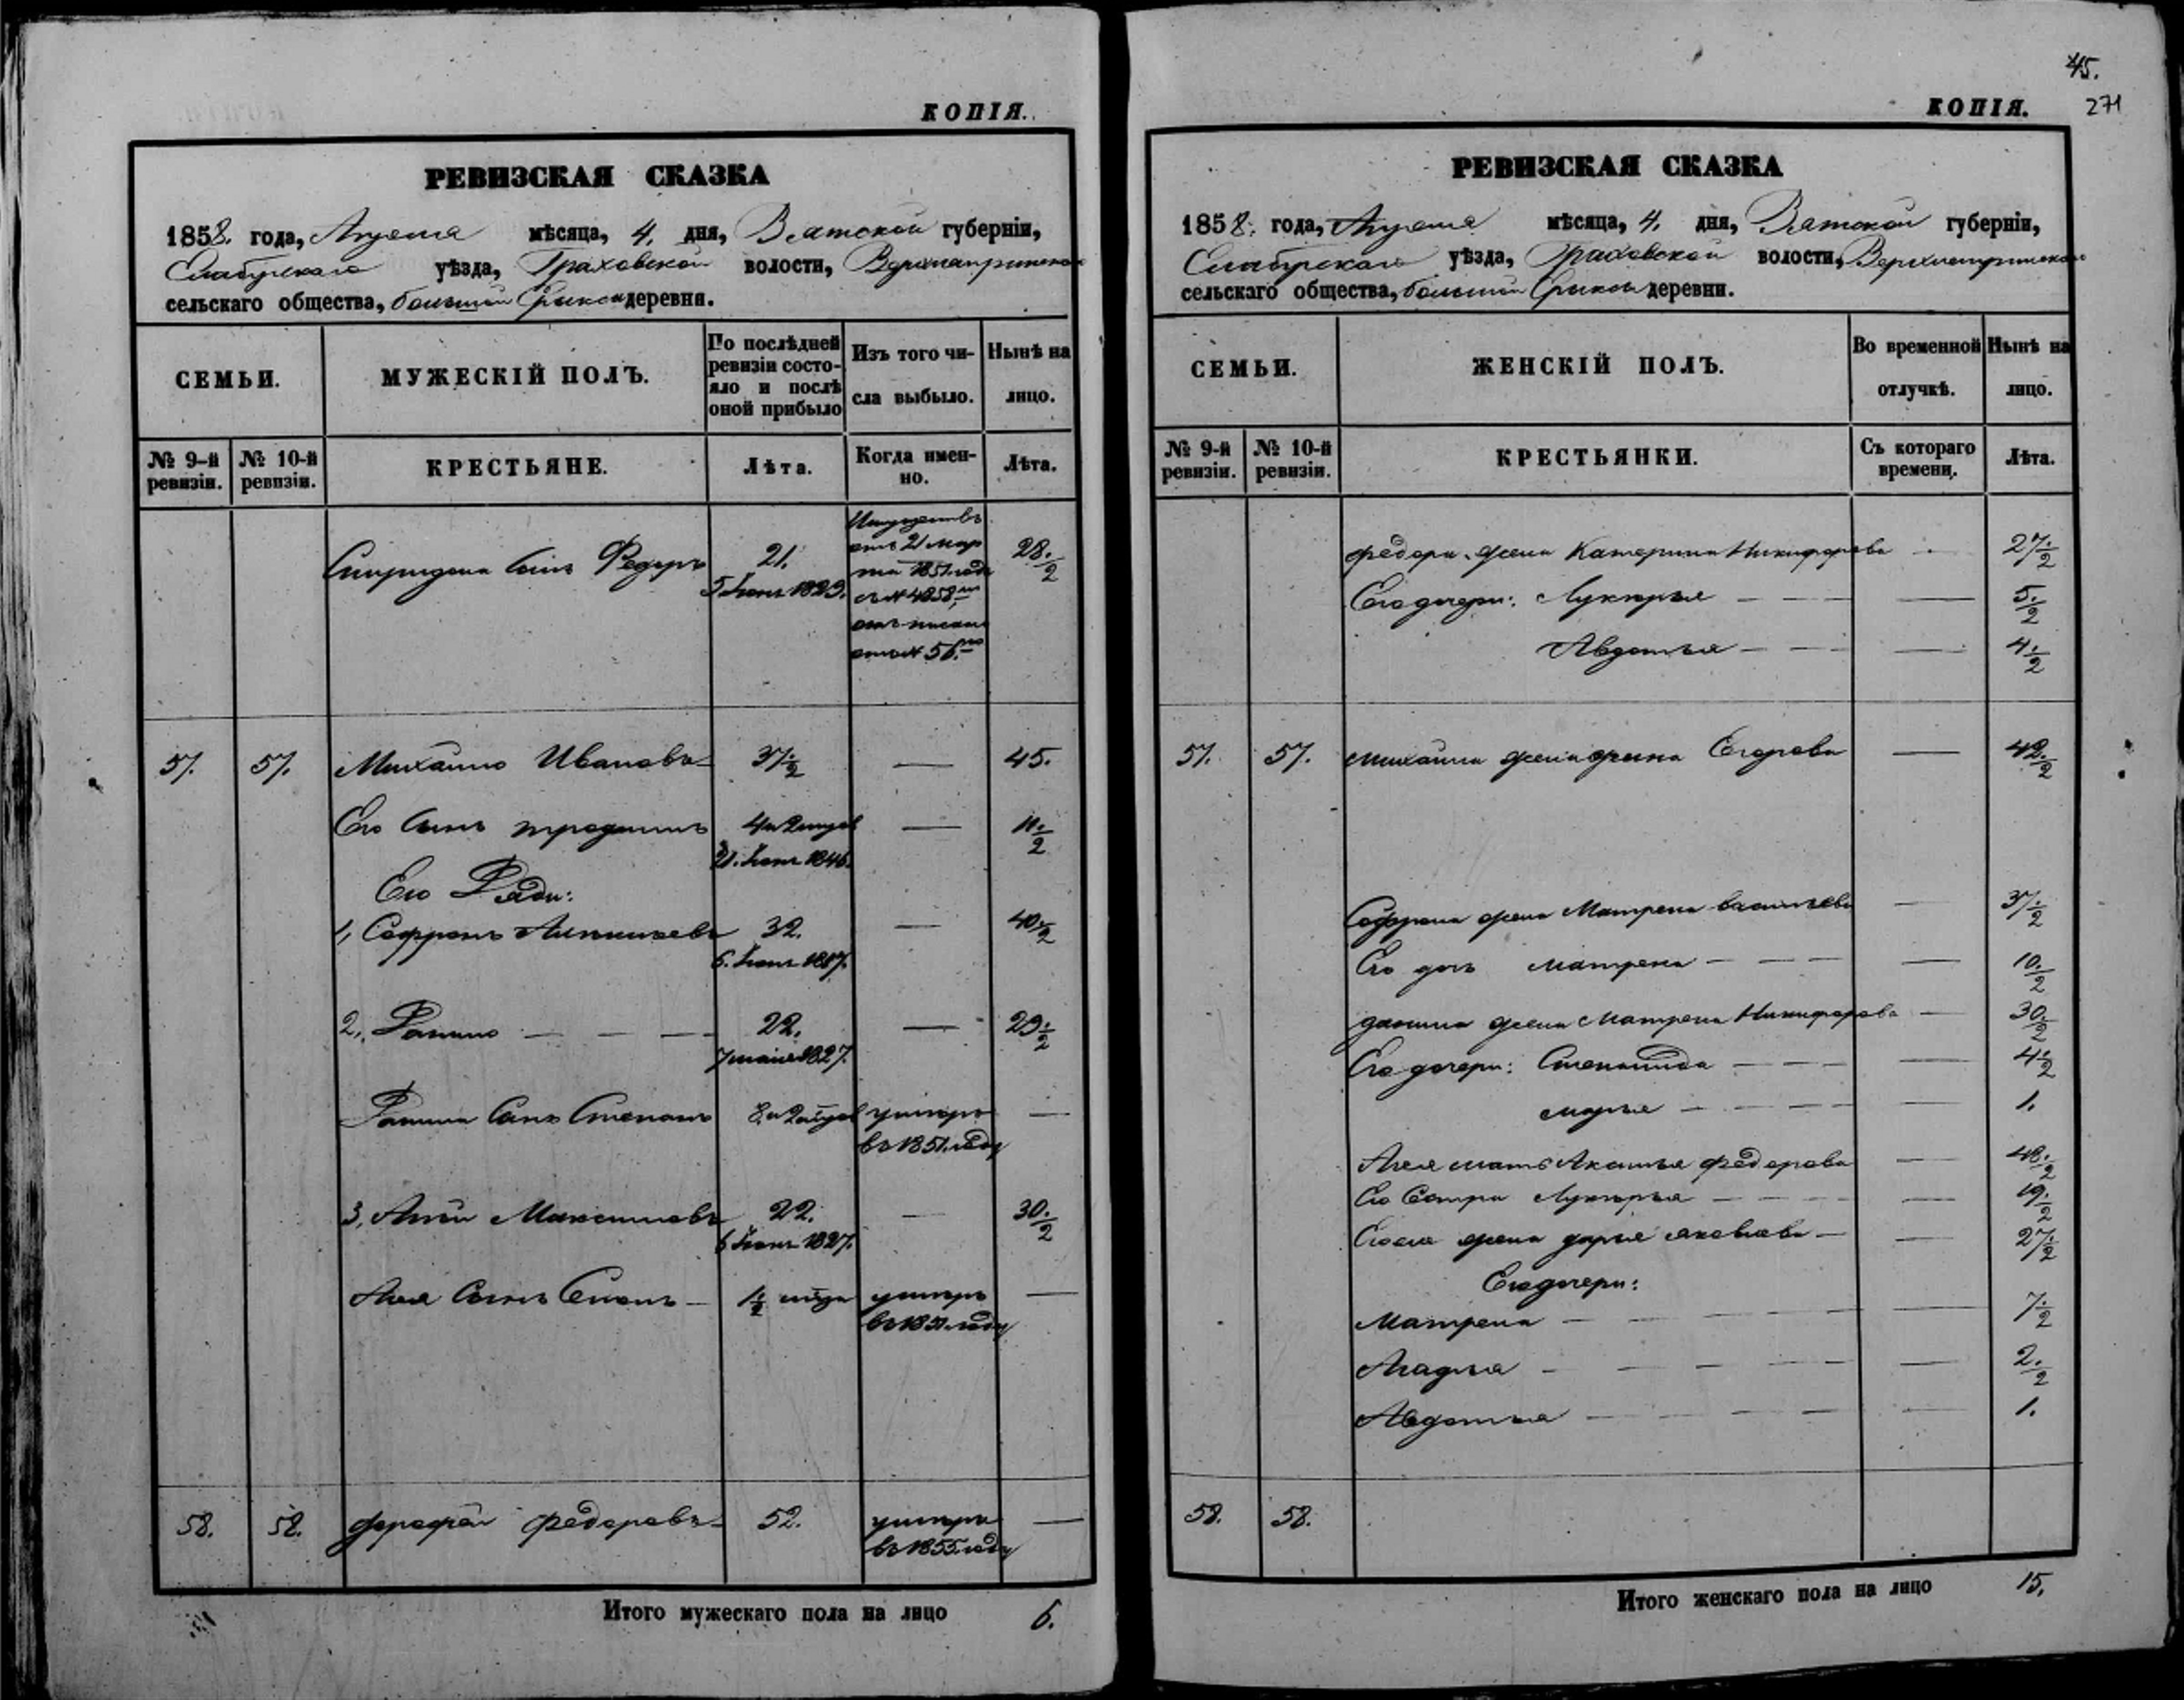 КОПІЯ.
РЕВИЗСКАЯ СКАЗКА
1858. года, Апреля мѣсяца, 4. дня, Вятской губерніи,
Елабугскаго уѣзда, Граховской волости,
сельскаго общества, большой Ерыксы деревни.
СЕМЬИ.
МУЖЕСКІЙ ПОЛЪ.
По послѣдней ревизіи состояло и послѣ оной прибыло
Изъ того числа выбыло.
Нынѣ на лицо.
№ 9-й ревизіи.
№ 10-й ревизіи.
КРЕСТЬЯНЕ.
Лѣта.
Когда именно.
Лѣта.
Спиридона сынъ Федоръ 21. 28.½
от 21 мар
та 1851 года
5 1829. № 4858
56.
57. 57. Михайло Ивановъ 37½ — 45.
Его сынъ — 11.½
21. 1846.
Его Дяди:
1, Софронъ 32. — 40.½
6. 1817.
2, Данило — — — 22. — 29.½
7 мая 1827.
Данила Сынъ Степанъ умеръ —
въ 1851. году
3, Агѣй Максимовъ 22. — 30.½
6 1827.
Агея Сынъ Семенъ — 1.½ умеръ —
въ 1851. году
58. 58. Федоровъ 52. умеръ —
въ 1855. году
Итого мужескаго пола на лицо 6.
45.
271
КОПІЯ.
РЕВИЗСКАЯ СКАЗКА
1858. года, Апреля мѣсяца, 4. дня, Вятской губерніи,
Елабугскаго уѣзда, Граховской волости,
сельскаго общества, большой Ерыксы деревни.
СЕМЬИ.
ЖЕНСКІЙ ПОЛЪ.
Во временной отлучкѣ.
Нынѣ на лицо.
№ 9-й ревизіи.
№ 10-й ревизіи.
КРЕСТЬЯНКИ.
Съ котораго времени.
Лѣта.
Федора жена Катерина Никифорова 27.½
Его дочери: Лукерья — — — 5.½
Авдотья — — — 4.½
57. 57. Михайла жена Орина Егорова — 42.½
Софрона жена Матрена Васильева — 37.½
Его дочь Матрена — — — — 10.½
Данила жена Матрена Никифорова — 30.½
Его дочери: Степанида — — — 4.½
Марья — — — — 1.
Агея мать Акилина Федорова — 48.½
Его Сестра Лукерья — — — 19.½
Его жена Дарья Яковлева — — 27.½
Его дочери:
Матрена — — — — 7.½
Агафья — — — — 2.½
Авдотья — — — — 1.
58. 58.
Итого женскаго пола на лицо 15.